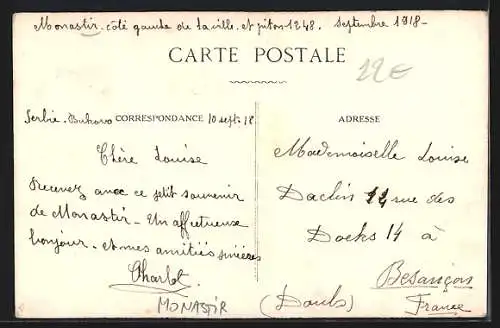 Monastir. côté gauche de la ville. et piton 1248. Septembre 1918-
CARTE POSTALE
12€
Serbie. Bukovo CORRESPONDANCE 10 sept. 18
Chère Louise
Recevez avec ce ptit souvenir
de Monastir. Un affectueuse
bonjour. et mes amitiés sincères
Charlot
MONASTIR
ADRESSE
Mademoiselle Louise
Daclin rue des
Docks 14 à
Besançon
(Doubs) France